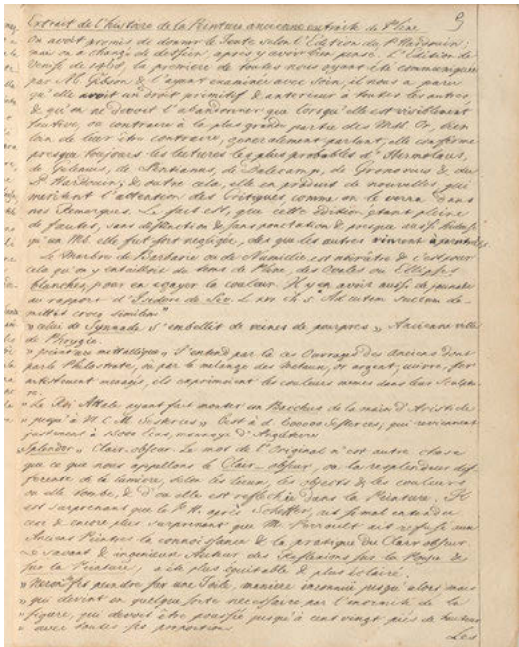 Extrait de l'histoire de la Peinture ancienne extraite de Pline 9
On avoit promis de donner le Texte selon l'Edition du P. Hardouin;
mais on a changé de dessein, après y avoir bien pensé. L'Edition de
Venise de la première de toutes nous ayant été communiquée
par M. Gibson, & l'ayant examinée avec Soin, il nous a paru
qu'elle avoit un droit primitif & anterieur à toutes les autres,
& qu'on ne devoit l'abandonner que lorsqu'elle est visiblement
fautive, ou contraire à la plus grande partie des MSS. Or, bien
loin de leur être contraire, generalement parlant, elle confirme
presque toujours les lectures les plus probables d'Hermolaus,
de Gelenius, de Pintianus, de Dalecamp, de Gronovius & du
P. Hardouin; & outre cela, elle en produit de nouvelles, qui
meritent l'attention des Critiques, comme on le verra dans
nos Remarques. Le fait est, que cette edition étant pleine
de fautes, sans distinction & sans ponctuation & presque aussi
qu'un MS. elle fut fort negligée, dès que les autres vinrent à paroitre.
Le Marbre de Barbarie ou de Numidie est & c'est pour
cela qu'on y entailloit du tems de Pline, des Ovales ou Ellipses
blanches, pour en egayer la couleur. Il y en avoit aussi de jaunatre
au rapport d'Isidore de Sev. L. XVI ch 5. Ad cutem succum di-
mittit croco similem"
" celui de Synnade s'embellit de veines de pourpre " Ancienne ville
de Phrygie.
" peinture mettallique " S'entend par là ces Ouvrages des Anciens dont
parle Philostrate, où par le mélange des metaux, or argent, cuivre, for
nuagés, ils exprimoient les couleurs memes dans leur Sculptu-
" Le Roi Attale ayant fait monter un Bacchus de la main d'Aristide
" jusqu'à Sesterces " C'est à d. 600000 Sesterces, qui reviennent
justement à 5000 livs, monnoye d'Angleterre
Splendor " Clair-obscur. Le mot de l'Original n'est autre chose
que ce que nous appellons le Clair-obscur, ou la resplendeur dif-
ference de la lumiere, selon les lieux, les objets & les couleurs
où elle tombe, & d'où elle est reflechie dans la Peinture. Il
est surprenant que le P. H. après Scheffer, ait si mal entendu
ceci & encore plus surprenant que M. Perrault ait refusé aux
Anciens Peintres la connoissance & la pratique du Clair obscur
Le savant & ingenieux Auteur des Reflexions sur la Poesie &
sur la Peinture, a été plus equitable & plus éclairé.
" Neron fit peindre sur une Toile, maniere inconnuë jusqu'alors, mais
" qui devint en quelque sorte necessaire par l'enormité de la
" figure, qui devoit être poussée jusqu'à cent vingt piés de hauteur
" avec toutes ses proportions
Les